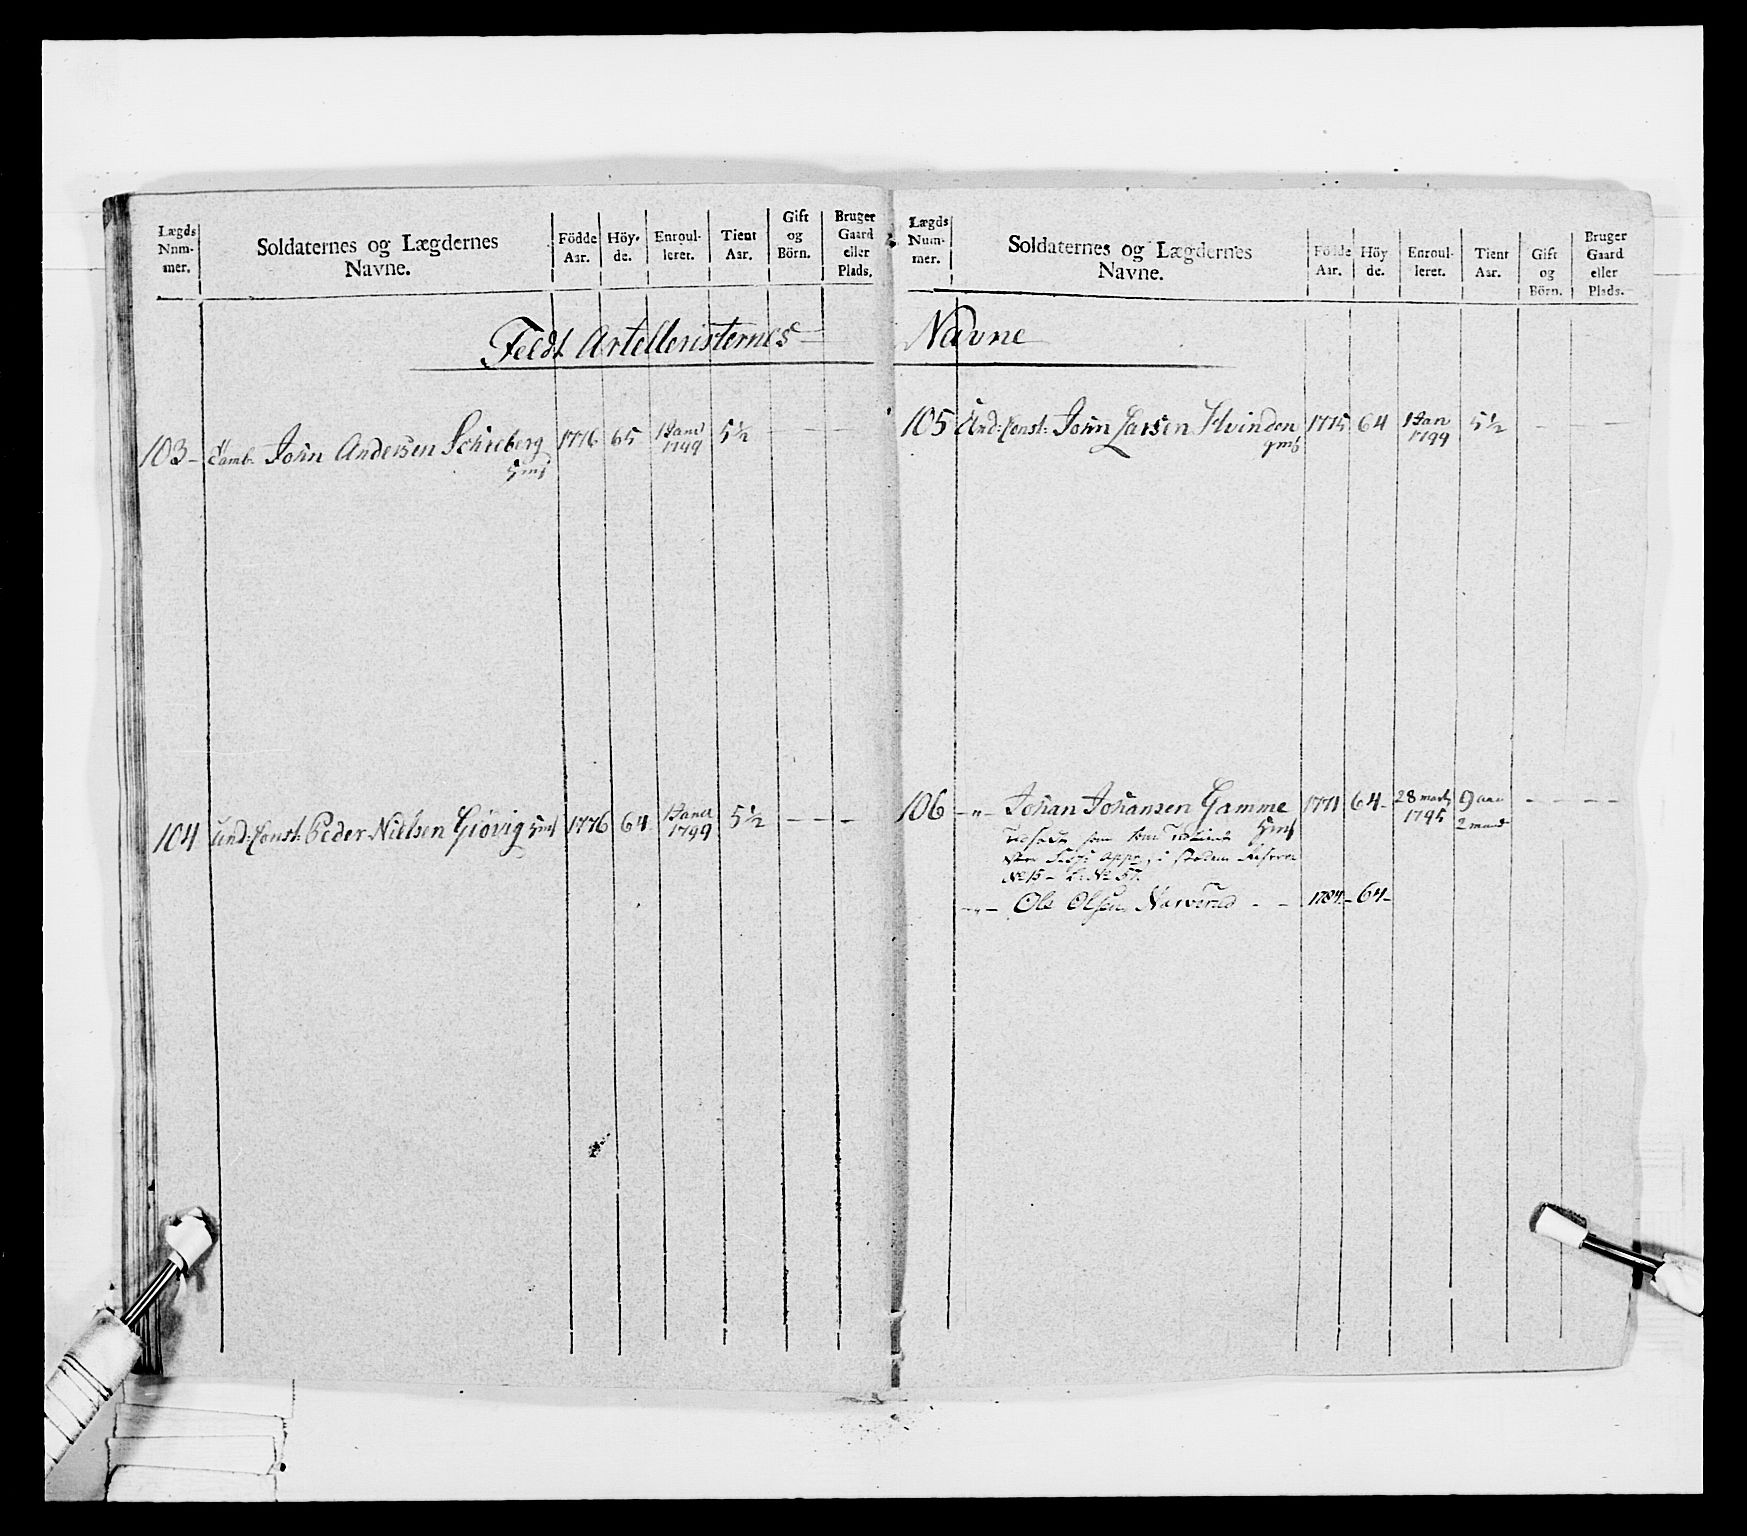 Lægds Nnm- mer.
Soldaternes og Lægdernes Navne.
Födde Aar.
Höy- de.
Enroul- leret.
Tient Aar.
Gift og Börn.
Bruger Gaard eller Plads.
Feldt Artelleristernes
103 John Andersen Schieberg 1776 65 1 Janv 1799 5½ — —
104 Und: Const: Peder Nielsen Giövig 1776 64 1 Janv 1799 5½ — —
Lægds Num- mer.
Soldaternes og Lægdernes Navne.
Födde Aar.
Höy de.
Enroul- leret.
Tient Aar.
Gift og Börn.
Bruger Gaard eller Plads.
Navne
105 Und: Const: John Larsen Hvinden 1775 64 1 Jan 1799 5½ — —
106 —„— Johan Johansen Gamme 1771 64 28 marty 1795 9 aar 2 maand — —
No 15 — No 57.
—„— Ole Olsen — — 1784 — 64 —